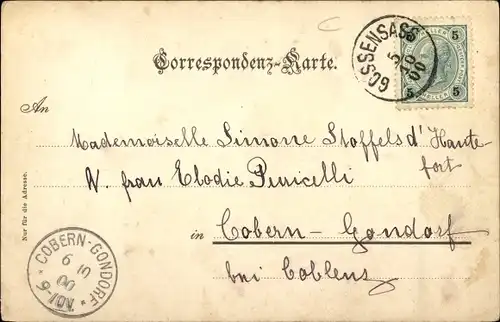 Correspondenz-Karte.
GOSSENSASS
5 10 00
5 5
5 HELLER 5
An
Mademoiselle Simone Stoffels d'Haute-
fort
V. frau Elodie Puricelli
in Cobern-Gondorf
bei Coblenz
Nur für die Adresse.
COBERN-GONDORF
6 10
00